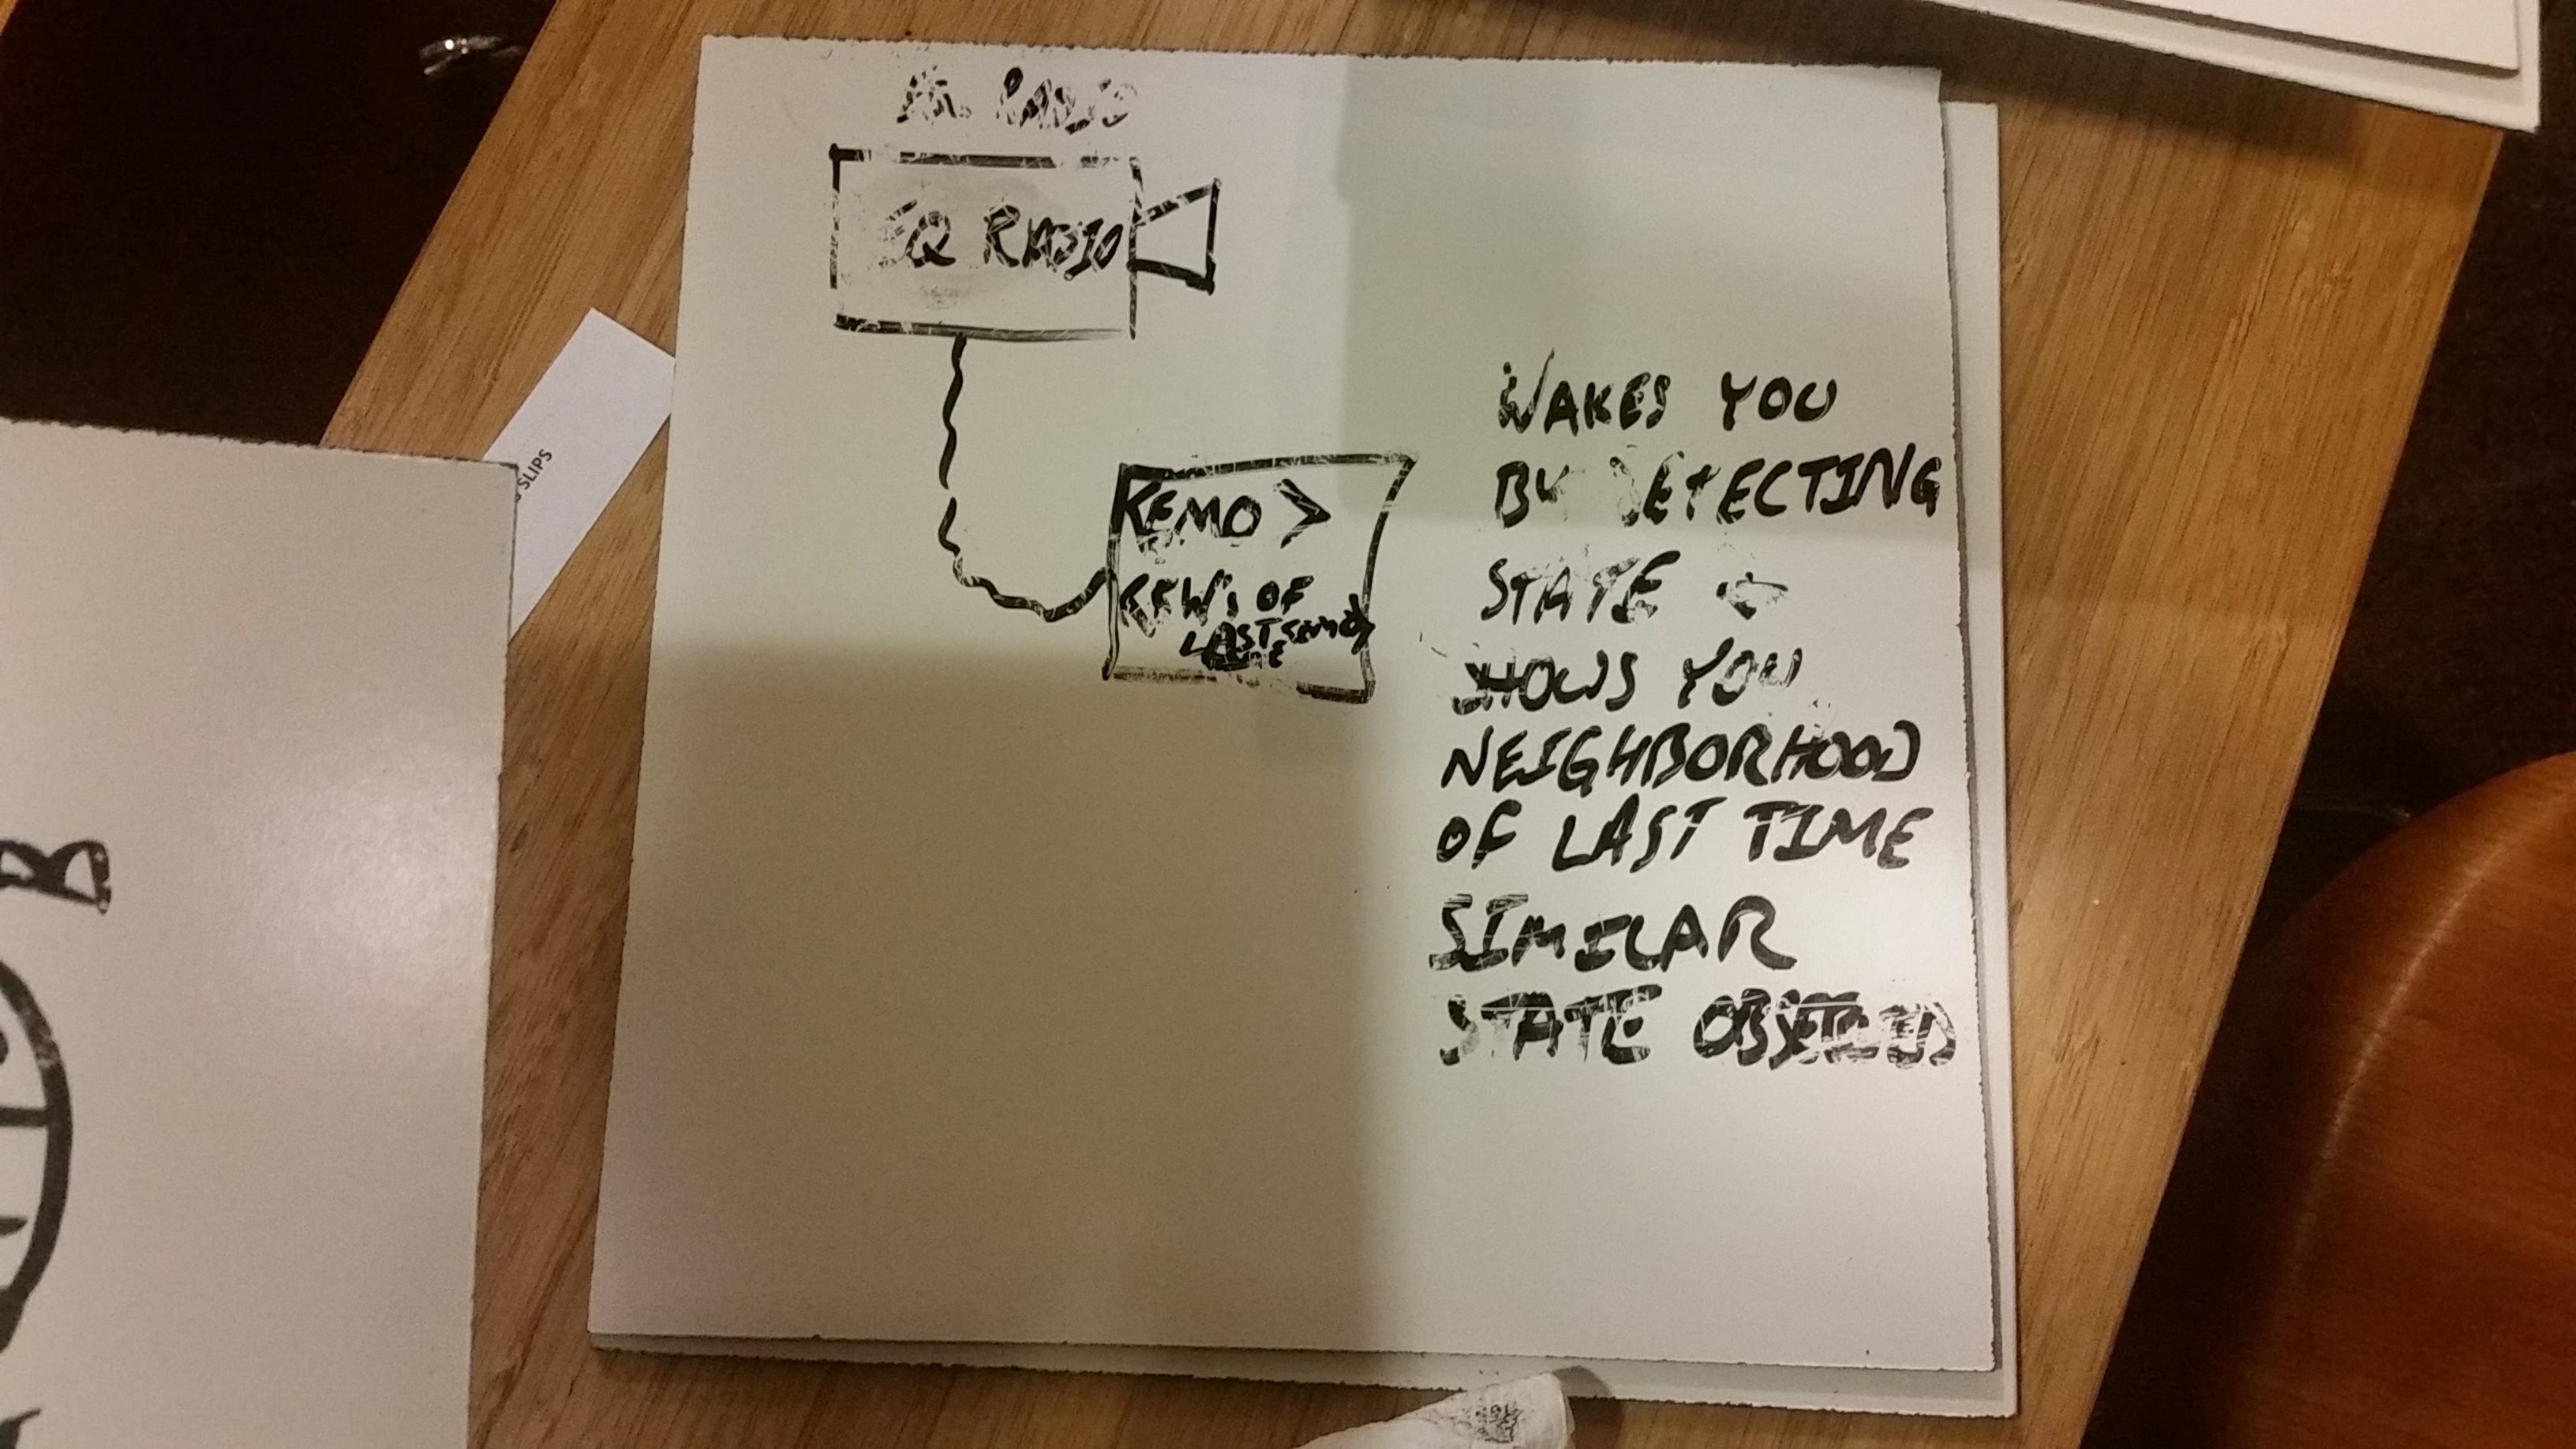 EQ RADIO
REMO >
OF
LAST
WAKES YOU
BY DETECTING
STATE +
SHOWS YOU
NEIGHBORHOOD
OF LAST TIME
SIMILAR
STATE OBSERVED
SLIPS